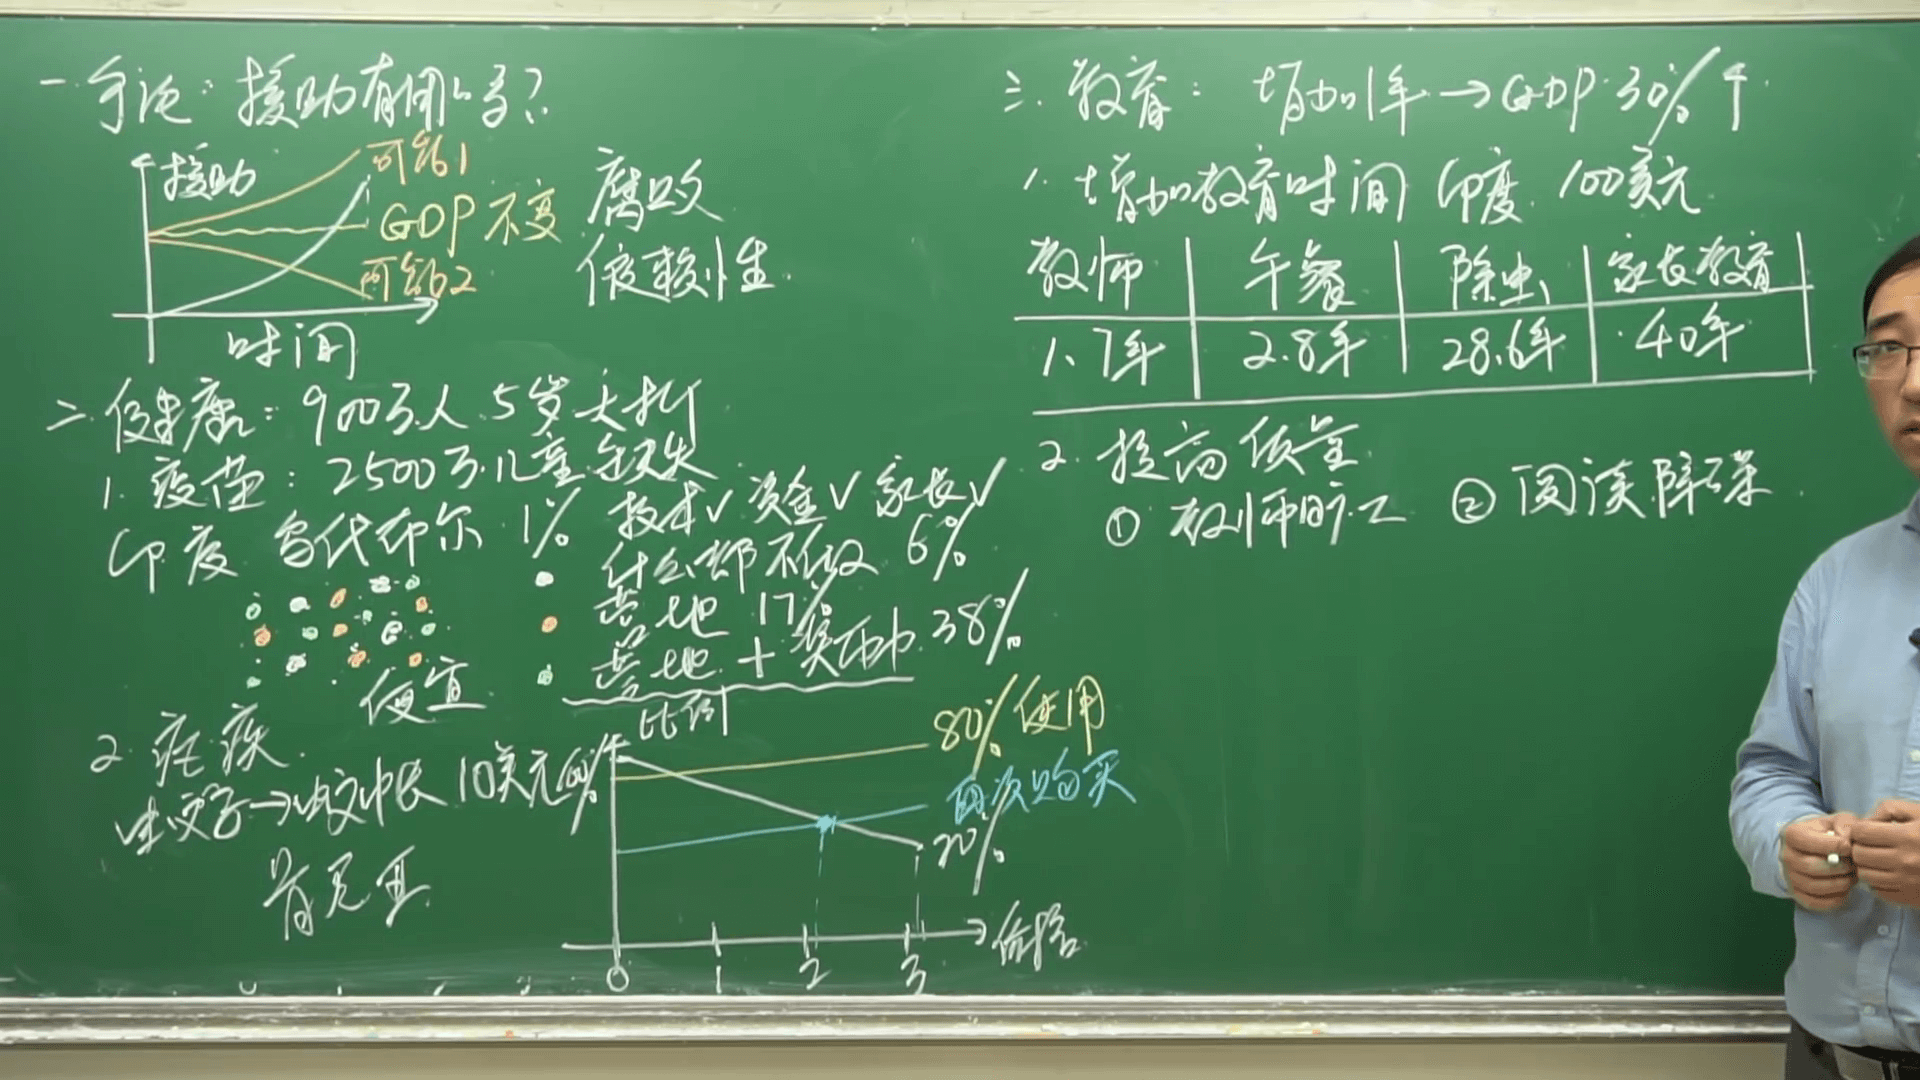 一.争论:援助有用吗?
援助
可能1
GDP不变
可能2
时间
腐败
依赖性
二.健康:900万人 5岁夭折
1.疫苗:2500万儿童缺失
印度 乌代布尔 1%
技术✓ 资金✓ 家长✓
什么都不做 6%
营地 17%
营地+奖币 38%
便宜
2.疟疾
蚊子→蚊帐 10美元
肯尼亚
比例
80%使用
再次购买
20%
价格
0 1 2 3
三.教育:增加1年→GDP 30%↑
1.增加教育时间 印度 100美元
教师 午餐 除虫 家长教育
1.7年 2.8年 28.6年 40年
2.提高质量
①教师旷工 ②阅读障碍